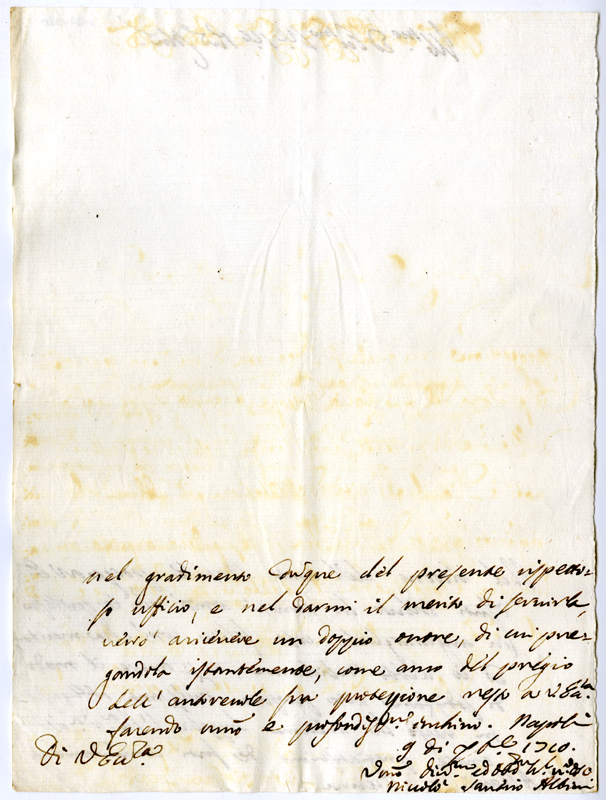 nel gradimento dunque del presente rispetto-
so ufficio, e nel darmi il merito di servirla,
verrò a ricevere un doppio onore, di cui pre-
gandola istantemente, come anco del pregio
dell' autorevole sua protezione resto a V. Ecc.ᵃ
facendo umo e profondiss.ᵐᵒ inchino. Napoli
9 di 7bre 1710.
Di V. Ecc.ᵃ
Niccolò